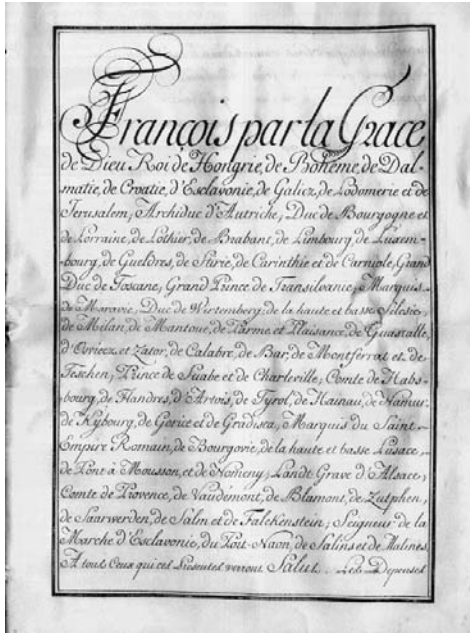 François par la Grace
de Dieu Roi de Hongrie, de Boheme, de Dal-
matie, de Croatie, d'Esclavonie, de Galicz, de Lodomerie et de
Jerusalem; Archiduc d'Autriche; Duc de Bourgogne et
de Lorraine, de Lothier, de Brabant, de Limbourg, de Luxem-
bourg, de Gueldres, de Stirie, de Carinthie et de Carniole; Grand
Duc de Toscane; Grand Prince de Transilvanie; Marquis
de Moravie; Duc de Wirtemberg, de la haute et basse Silesie,
de Milan, de Mantoue, de Parme et Plaisance, de Guastalle,
et Zator, de Calabre, de Bar, de Montferrat et de
Teschen; Prince de Suabe et de Charleville; Comte de Habs-
bourg, de Flandres, d'Artois, de Tyrol, de Hainau, de Namur,
de Kybourg, de Gorice et de Gradisca; Marquis du Saint-
Empire Romain, de Bourgovie, de la haute et basse Lusace,
de Pont à Mousson, et de Nomeny; Landt-Grave d'Alsace;
Comte de Provence, de Vaudémont, de Blamont, de Zutphen,
de Saarwerden, de Salm et de Falckenstein; Seigneur de la
Marche d'Esclavonie, du Port-Naon, de Salins et de Malines,
A tous Ceux qui ces Presentes verront Salut. Les Depenses